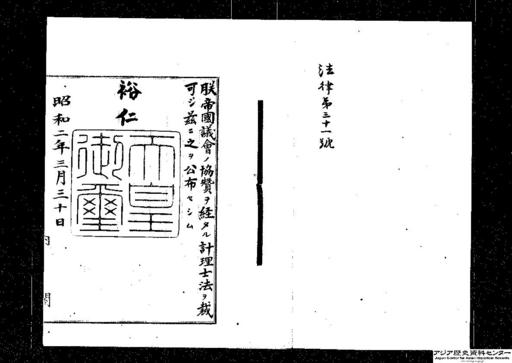 法律第三十一號
朕帝國議會ノ協贊ヲ經タル計理士法ヲ裁
可シ茲ニ之ヲ公布セシム
裕仁
天皇
御璽
昭和二年三月三十日
内閣
アジア歴史資料センター
Japan Center for Asian Historical Records